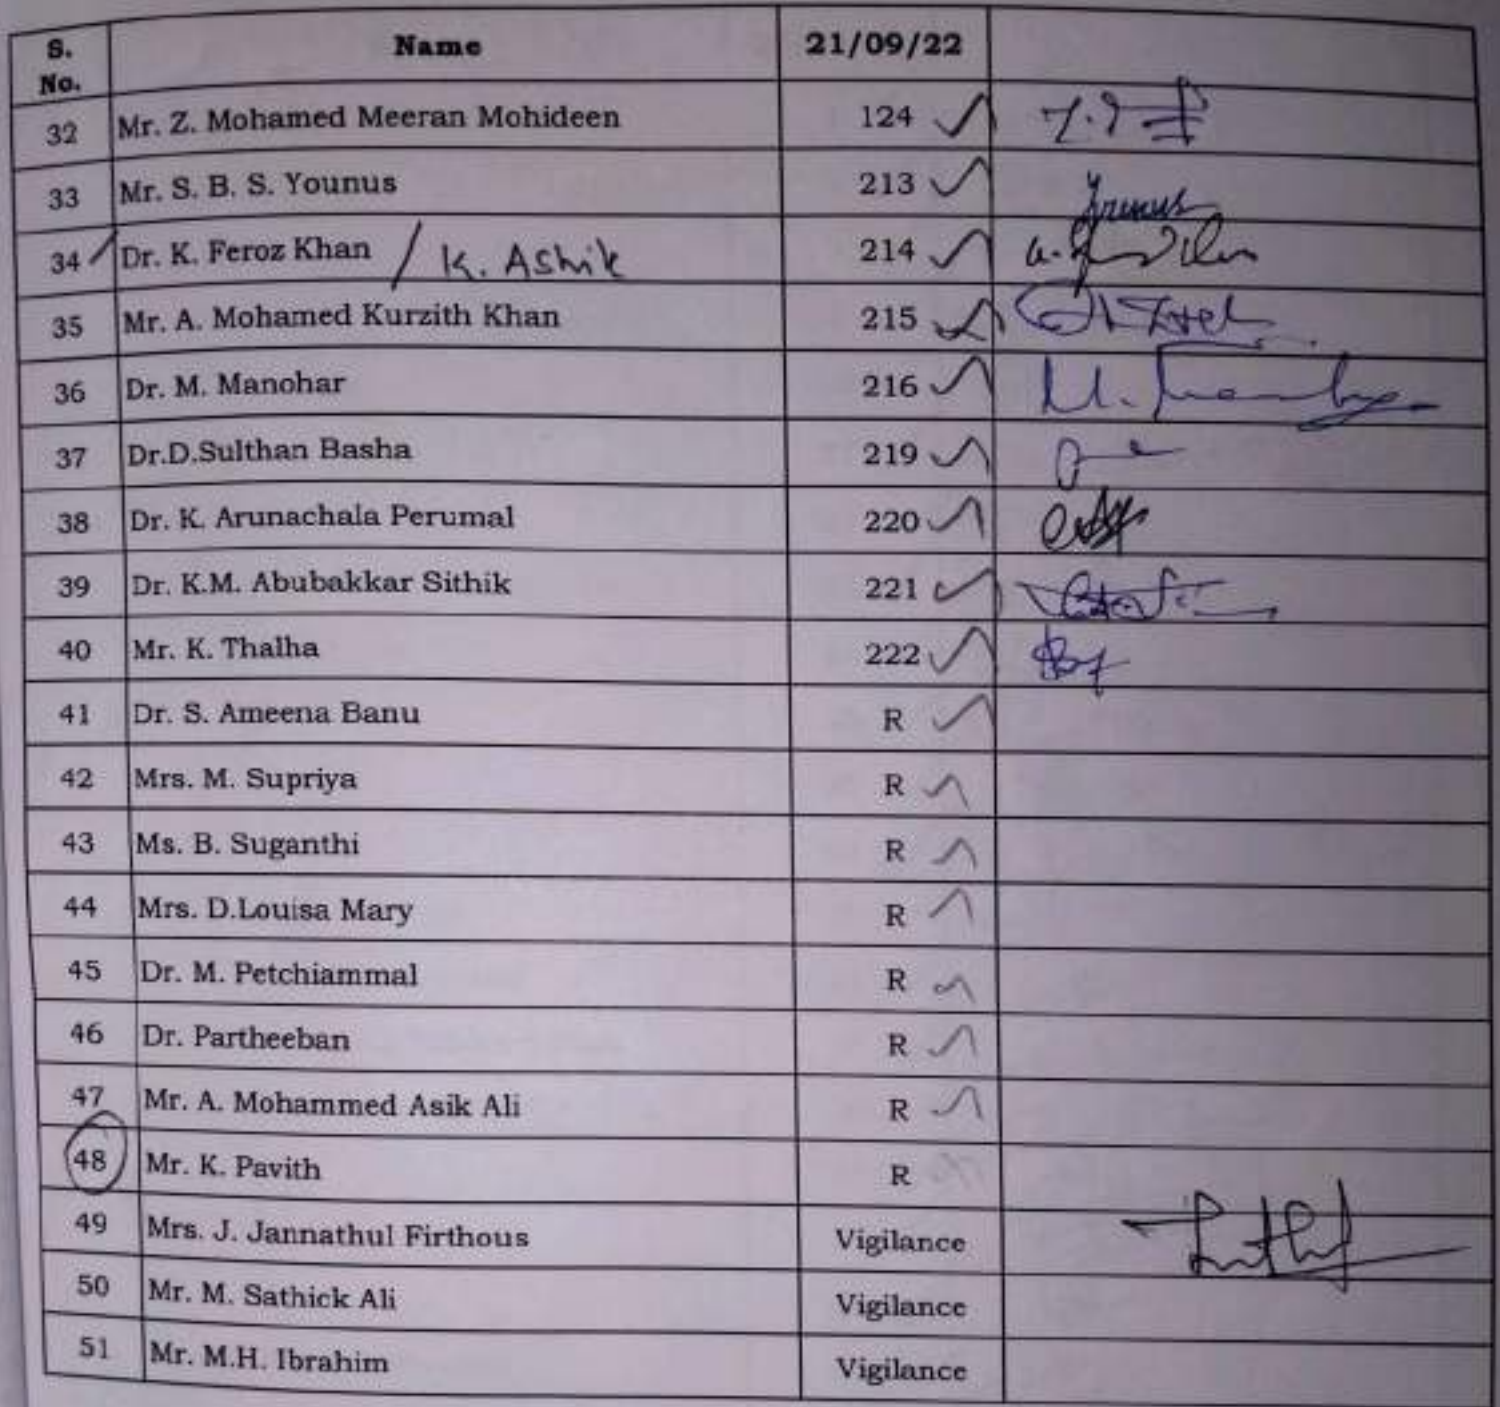 S. No. Name 21/09/22
32 Mr. Z. Mohamed Meeran Mohideen 124
33 Mr. S. B. S. Younus 213 Younus
34 Dr. K. Feroz Khan / K. Ashik 214
35 Mr. A. Mohamed Kurzith Khan 215
36 Dr. M. Manohar 216
37 Dr.D.Sulthan Basha 219
38 Dr. K. Arunachala Perumal 220
39 Dr. K.M. Abubakkar Sithik 221
40 Mr. K. Thalha 222
41 Dr. S. Ameena Banu R
42 Mrs. M. Supriya R
43 Ms. B. Suganthi R
44 Mrs. D.Louisa Mary R
45 Dr. M. Petchiammal R
46 Dr. Partheeban R
47 Mr. A. Mohammed Asik Ali R
48 Mr. K. Pavith R
49 Mrs. J. Jannathul Firthous Vigilance
50 Mr. M. Sathick Ali Vigilance
51 Mr. M.H. Ibrahim Vigilance